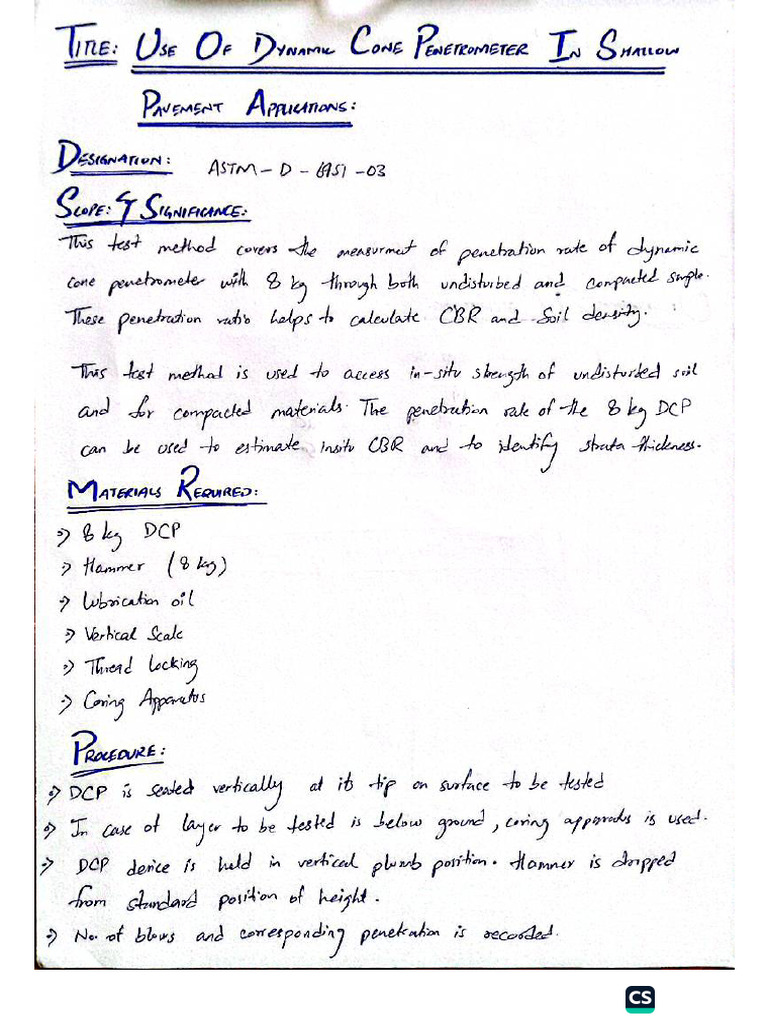 TITLE: USE OF DYNAMIC CONE PENETROMETER IN SHALLOW
PAVEMENT APPLICATIONS:
DESIGNATION: ASTM-D-6951-03
SCOPE: & SIGNIFICANCE:
This test method covers the measurment of penetration rate of dynamic
cone penetrometer with 8 kg through both undisturbed and compacted sample.
These penetration ratio helps to calculate CBR and Soil density.
This test method is used to access in-situ strength of undisturbed soil
and for compacted materials. The penetration rate of the 8 kg DCP
can be used to estimate insitu CBR and to identify strata thickness.
MATERIALS REQUIRED:
→ 8 kg DCP
→ Hammer (8 kg)
→ Lubrication oil
→ Vertical Scale
→ Thread Locking
→ Coring Apparatus
PROCEDURE:
→ DCP is seated vertically at its tip on surface to be tested
→ In case of layer to be tested is below ground, coring apparatus is used.
→ DCP device is held in vertical plumb position. Hammer is dropped
from standard position of height.
→ No. of blows and corresponding penetration is recorded.
CS